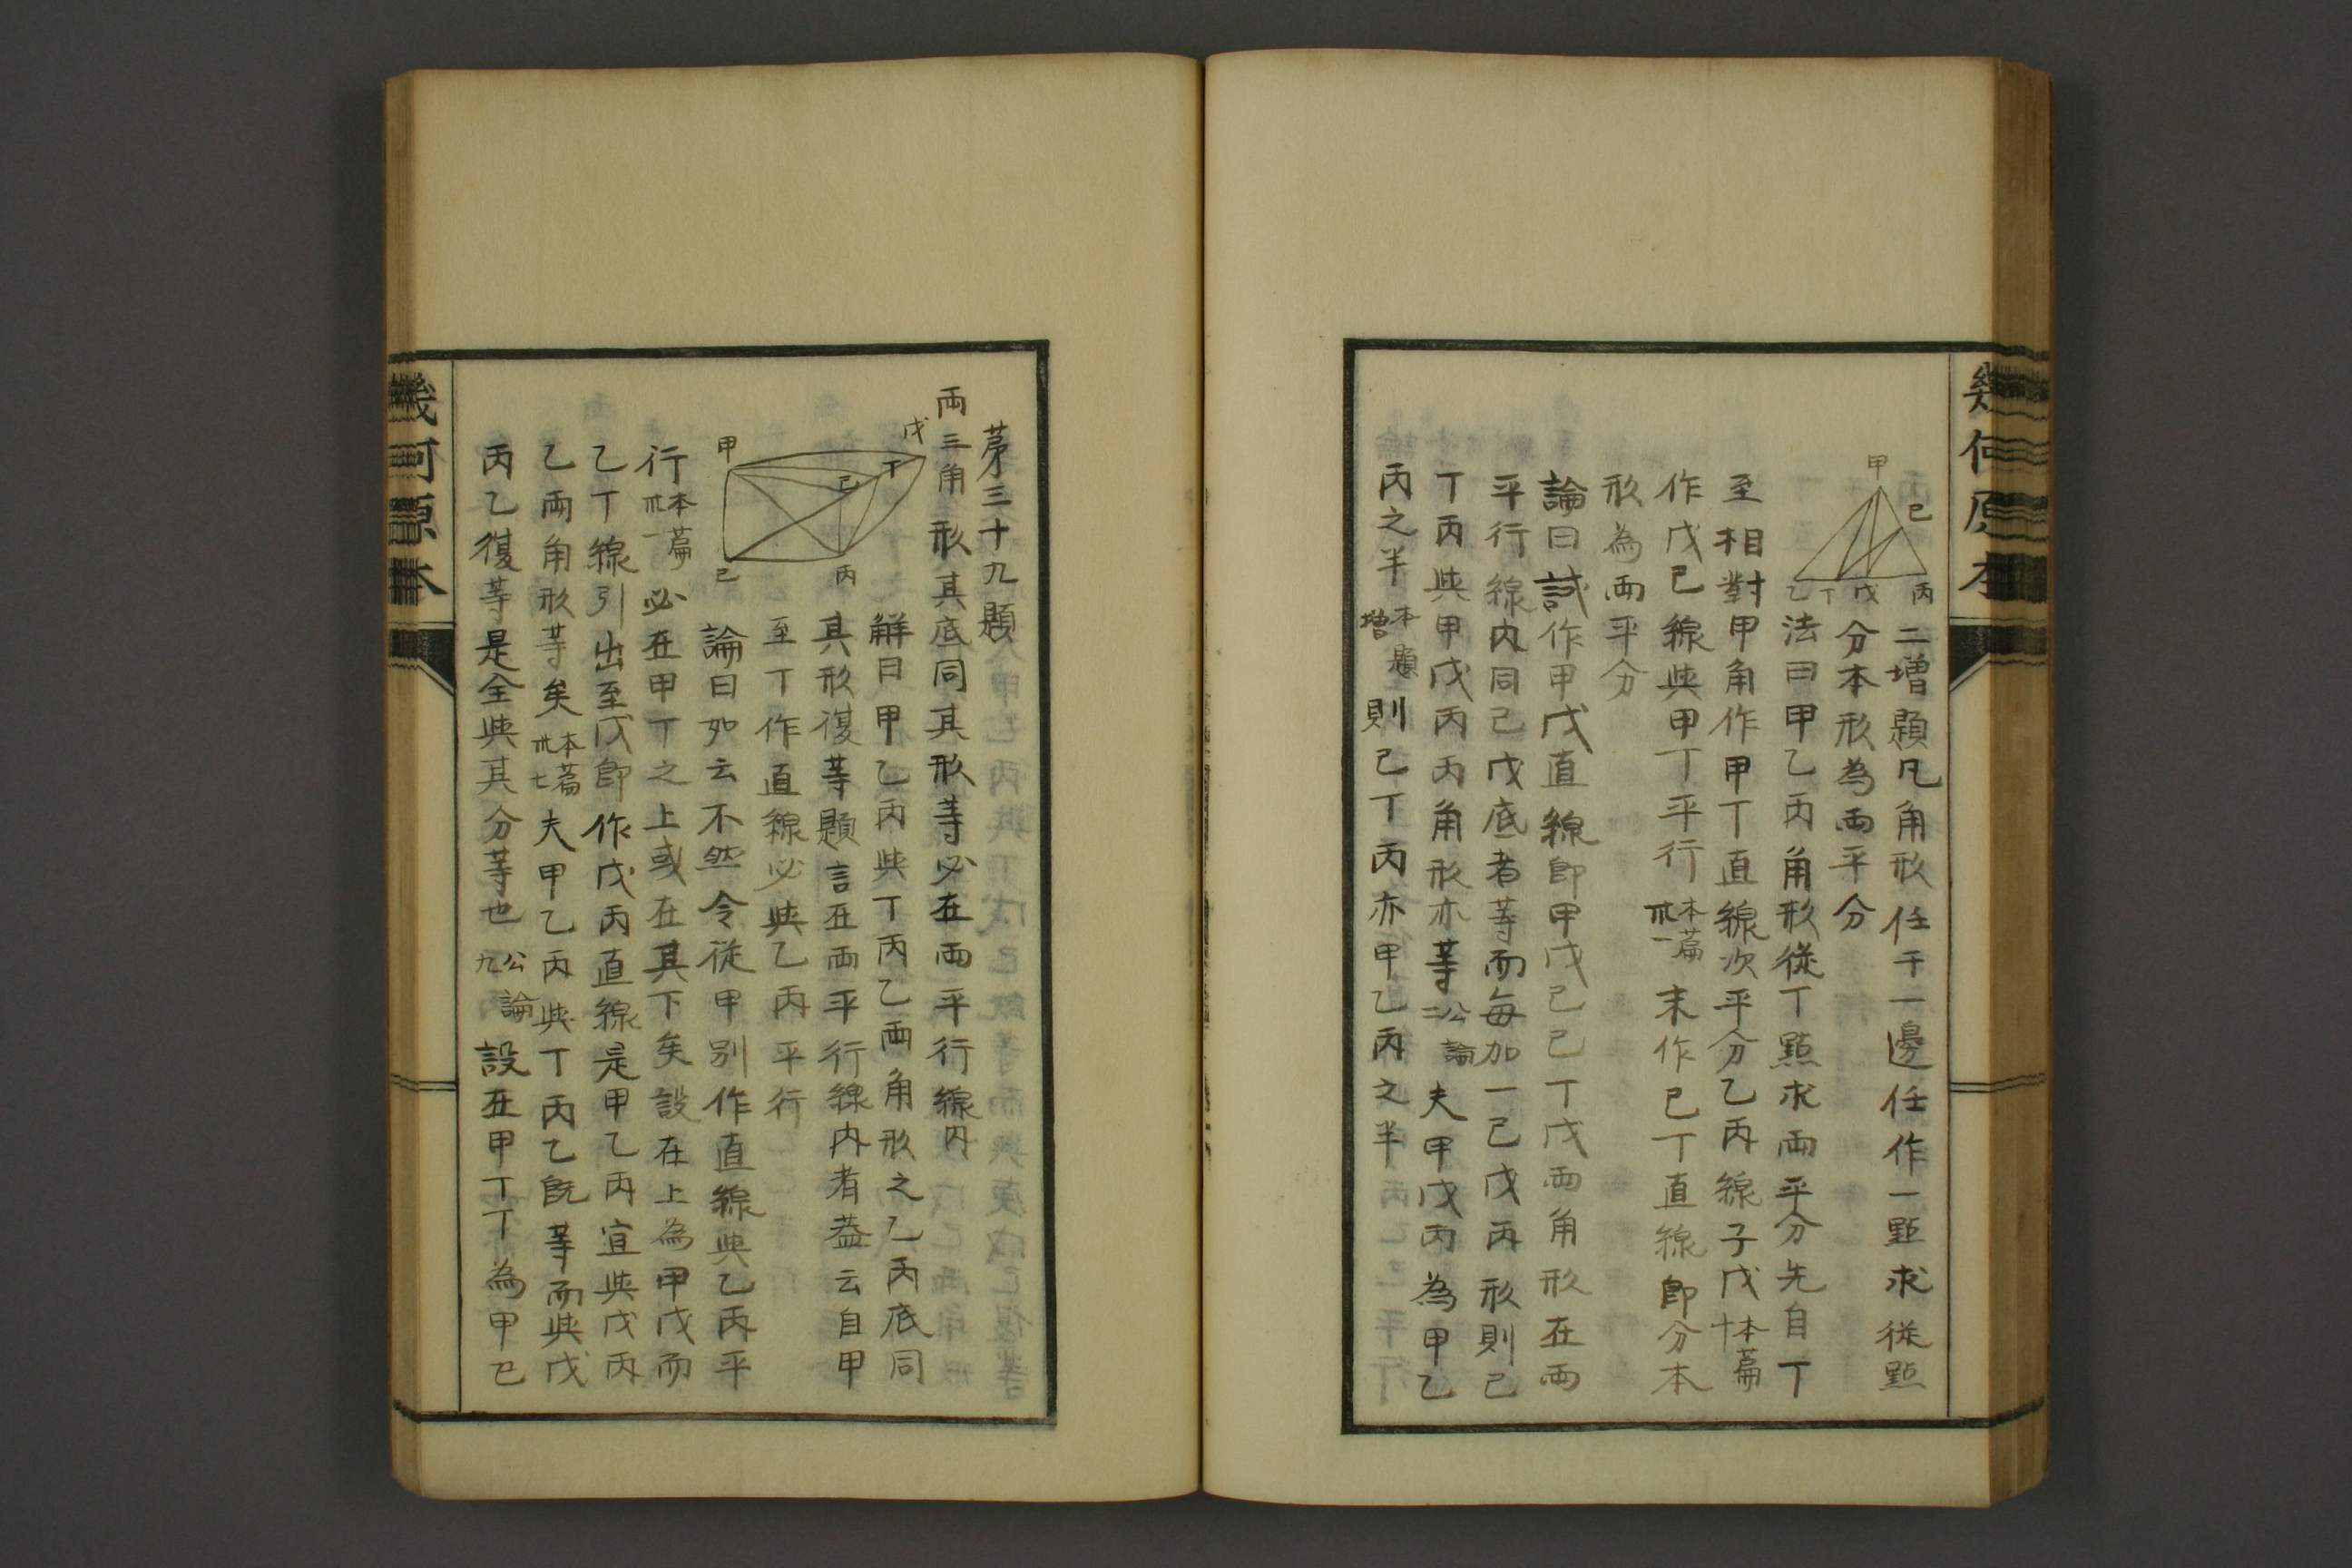 幾何原本
甲
己
乙丁戊丙
二增題凡角形任于一邊任作一點求從點
分本形為兩平分
法曰甲乙丙角形從丁點求兩平分先自丁
至相對甲角作甲丁直線次平分乙丙線子戊本篇十
作戊己線與甲丁平行本篇卅一末作己丁直線即分本
形為兩平分
論曰試作甲戊直線即甲戊己己丁戊兩角形在兩
平行線內同己戊底者等而每加一己戊丙形則己
丁丙與甲戊丙丙角形亦等公論二夫甲戊丙為甲乙
丙之半本題增則己丁丙亦甲乙丙之半
第三十九題
兩三角形其底同其形等必在兩平行線內
甲
戊
丁
己
己
丙
解曰甲乙丙與丁丙乙兩角形之乙丙底同
其形復等題言在兩平行線內者蓋云自甲
至丁作直線必與乙丙平行
論曰如云不然令從甲別作直線與乙丙平
行本篇卅一必在甲丁之上或在其下矣設在上為甲戊而
乙丁線引出至戊即作戊丙直線是甲乙丙宜與戊丙
乙兩角形等矣本篇卅七夫甲乙丙與丁丙乙既等而與戊
丙乙復等是全與其分等也公論九設在甲丁丁為甲己
幾何原本